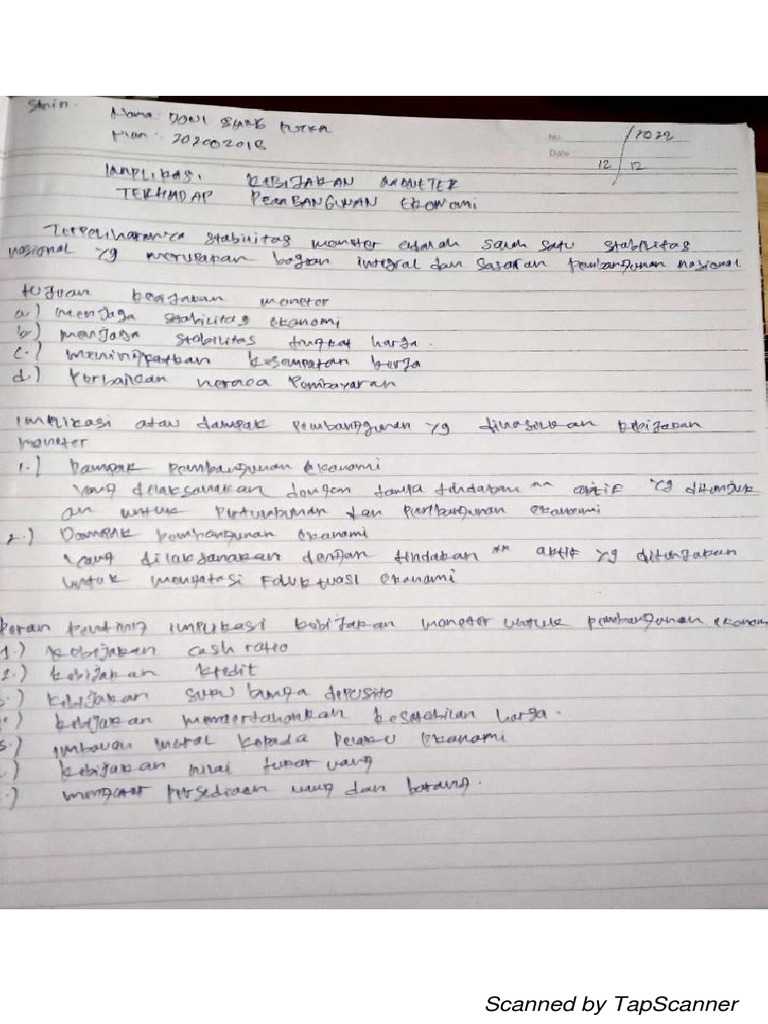 Senin.
Nama: DONI
Nim: 202002018
No.
Date:
12 / 12 / 2022
IMPLIKASI KEBIJAKAN MONETER
TERHADAP PEMBANGUNAN EKONOMI
Terpeliharanya stabilitas moneter adalah salah satu stabilitas
nasional yg merupakan bagian integral dan sasaran pembangunan nasional
tujuan kebijakan moneter
a.) menjaga stabilitas ekonomi
b.) menjaga stabilitas tingkat harga.
c.) meningkatkan kesempatan kerja
d.) Perbaikan neraca Pembayaran
implikasi atau dampak pembangunan yg dihasilkan kebijakan
moneter
1.) Dampak pembangunan ekonomi
yang dilaksanakan dengan tanpa tindakan "" aktif yg ditunjuk
an untuk Pertumbuhan dan Pembangunan ekonomi
2.) Dampak pembangunan ekonomi
yang dilaksanakan dengan tindakan "" aktif yg ditunjukan
untuk mengatasi ekonomi
Peran penting implikasi kebijakan moneter untuk pembangunan ekonomi
1.) kebijakan cash ratio
2.) kebijakan kredit
3.) kebijakan suku bunga deposito
kebijakan mempertahankan kestabilan harga.
5.) imbauan moral kepada pelaku ekonomi
.) kebijakan nilai tukar uang
.) mengatur persediaan uang dan barang.
Scanned by TapScanner